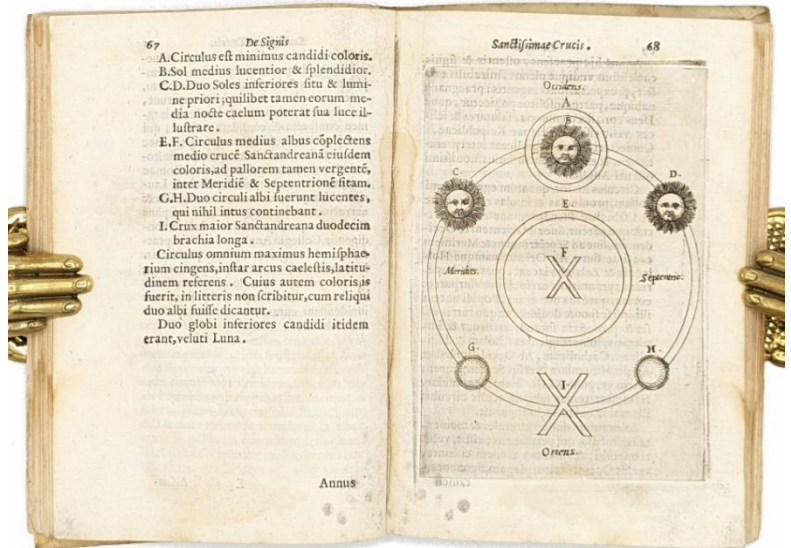 67 De Signis
A.Circulus eſt minimus candidi coloris.
B.Sol medius lucentior & ſplendidior.
C.D.Duo Soles inferiores ſitu & lumi-
ne priori;quilibet tamen eorum me-
dia nocte caelum poterat ſua luce il-
luſtrare.
E.F. Circulus medius albus cõplectens
medio crucẽ Sanctandreanã eiuſdem
coloris,ad pallorem tamen vergentẽ,
inter Meridiẽ & Septentrionẽ ſitam.
G.H.Duo circuli albi fuerunt lucentes,
qui nihil intus continebant.
I.Crux maior Sanctandreana duodecim
brachia longa.
Circulus omnium maximus hemiſphae
rium cingens,inſtar arcus caeleſtis,latitu-
dinem referens. Cuius autem coloris is
fuerit, in litteris non ſcribitur,cum reliqui
duo albi fuiſſe dicantur.
Duo globi inferiores candidi itidem
erant,veluti Luna.
Annus
Sanctiſsimae Crucis. 68
Occidens.
A
B
C.
D.
E.
F
Meridies.
Septentrio.
G.
H.
I.
Oriens.